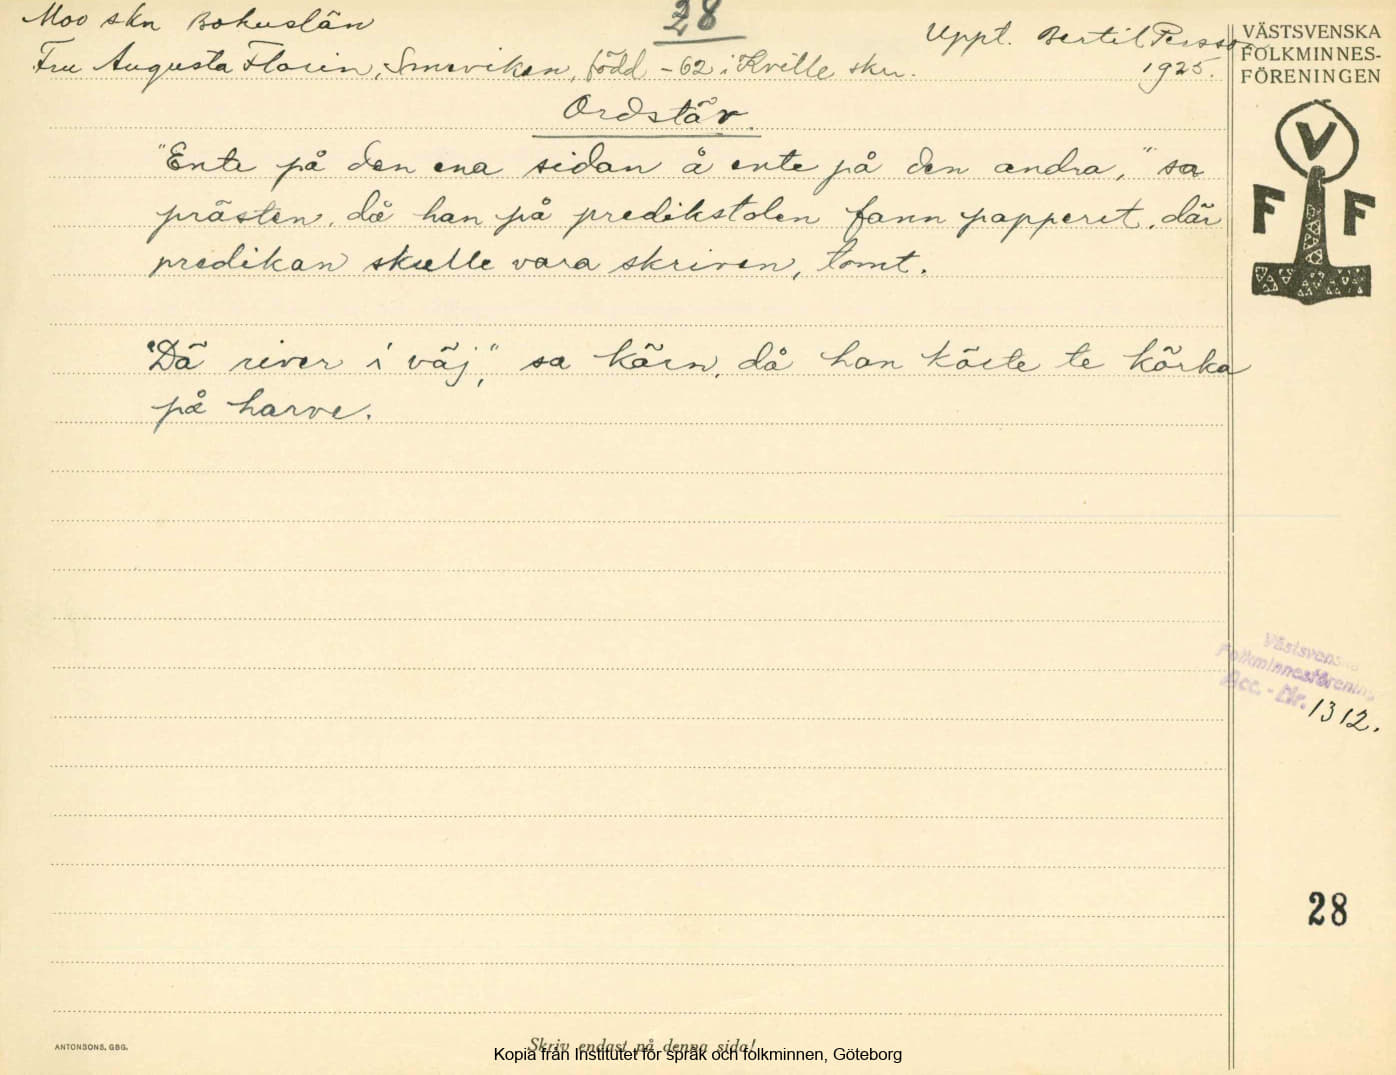 Moo skn Bohuslän
28
Uppt. Bertil Persson
Fru Augusta Florin, Smeviken, född -62 i Kville skn.
1925.
VÄSTSVENSKA
FOLKMINNES-
FÖRENINGEN
Ordstäv.
"Ente på den ena sidan å ente på den andra," sa
prästen, då han på predikstolen fann papperet, där
predikan skulle vara skriven, tomt.
"Dä river i väj," sa kärn, då han körte te körka
på harve.
V
F F
Västsvenska
Folkminnesförening
Acc.-Nr. 1312.
28
ANTONSONS, GBG.
Skriv endast på denna sida!
Kopia från Institutet för språk och folkminnen, Göteborg